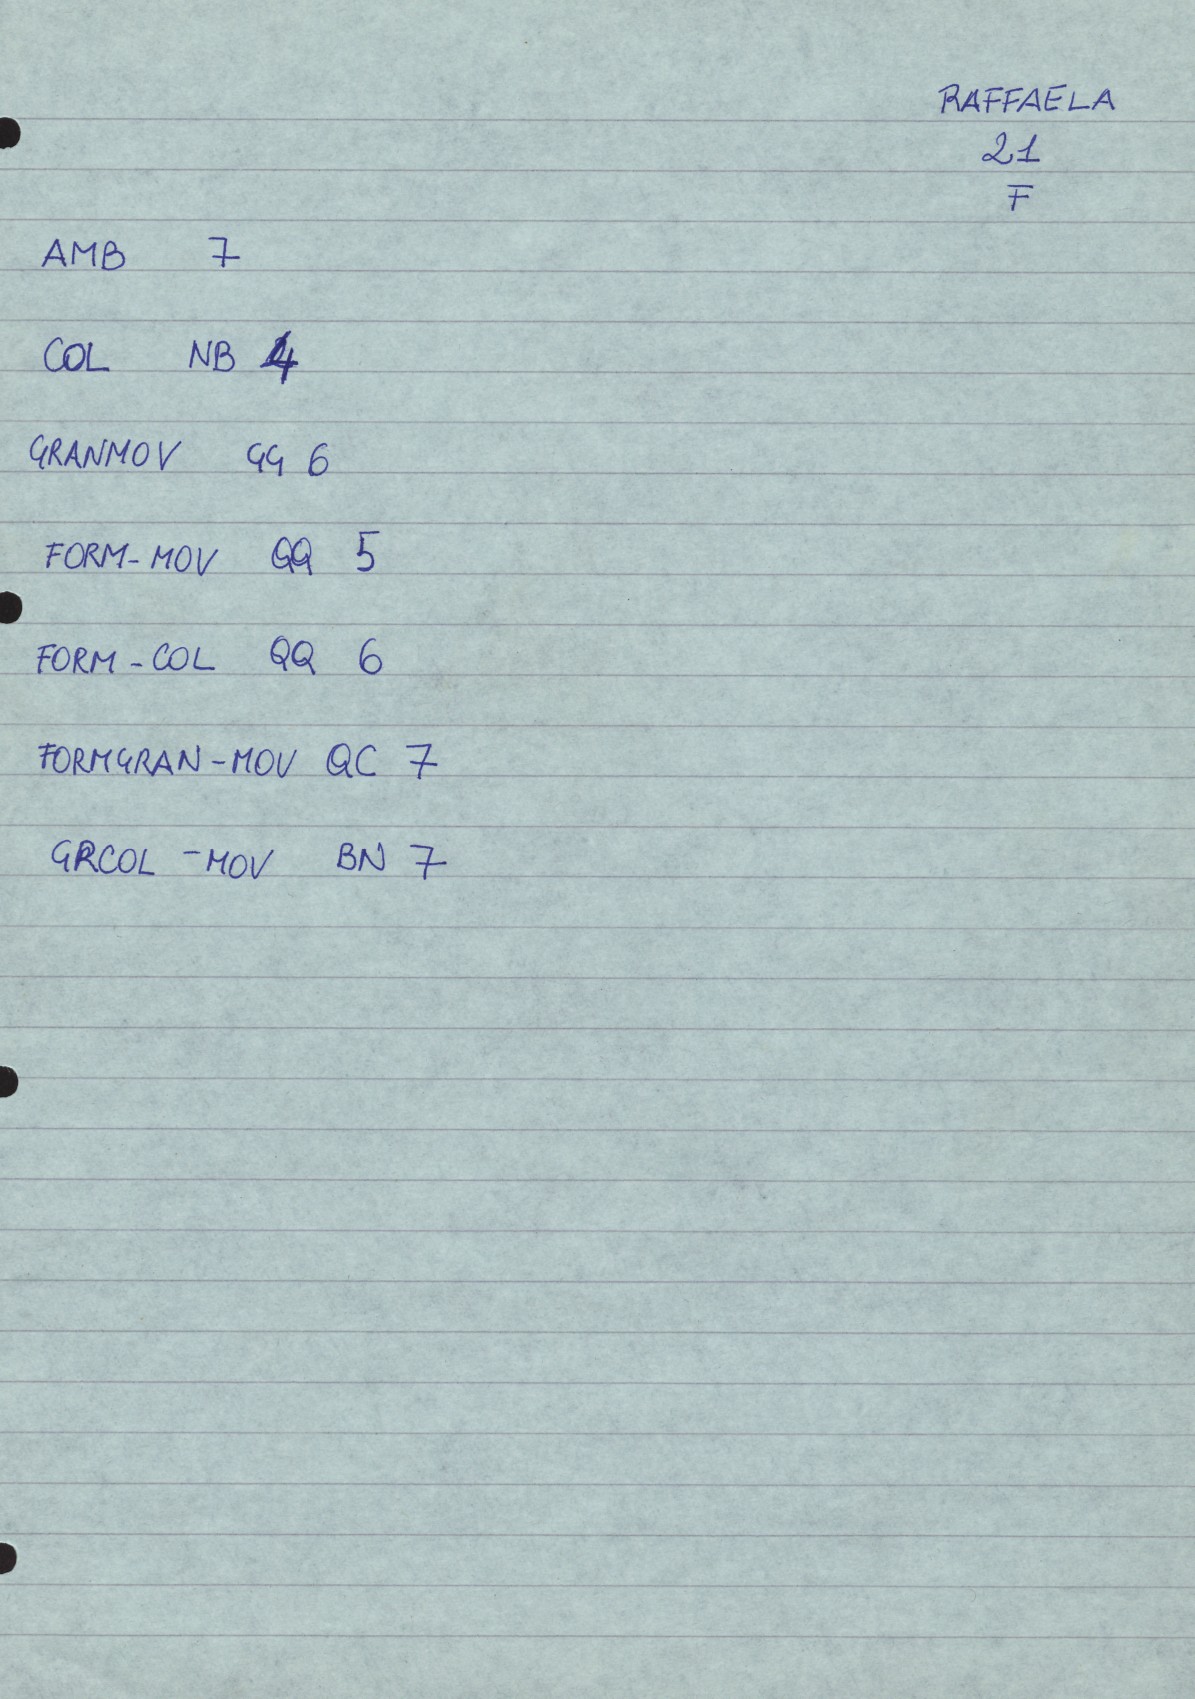 RAFFAELA
21
F
AMB 7
COL NB 4
GRANMOV GG 6
FORM-MOV QQ 5
FORM-COL QQ 6
FORMGRAN-MOV QC 7
GRCOL -MOV BN 7